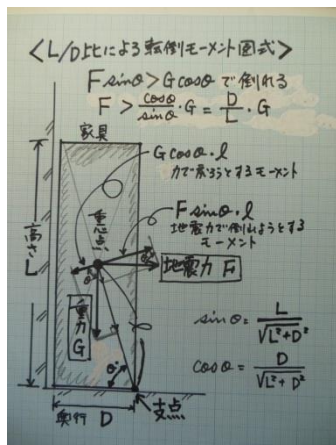 <L/D比による転倒モーメント図式>
F sinθ > G cosθ で倒れる
F > cosθ/sinθ・G = D/L・G
家具
G cosθ・l
力で戻ろうとするモーメント
重心点
F sinθ・l
地震力で倒れようとする
モーメント
高さL
θ
地震力 F
重力
G
l
sinθ = L/√L²+D²
cosθ = D/√L²+D²
θ
奥行 D
支点